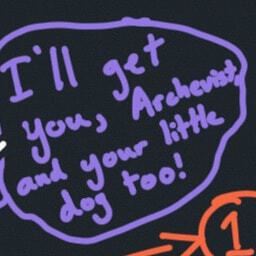 I'll get
you, Archevist,
and your little
dog too!
1